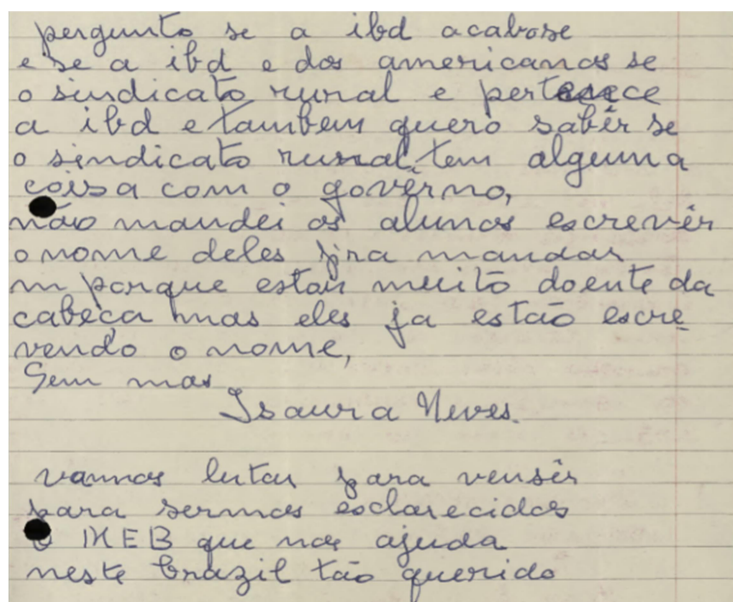 pergunto se a ibd acabose
e se a ibd e dos americanos se
o sindicato rural e pertence
a ibd e tambem quero sabêr se
o sindicato rural tem alguma
coisa com o govêrno,
não mandei os alunos escrevêr
o nome deles pra mandar
m porque estou muito doente da
cabeça mas eles ja estão escre
vendo o nome,
Sem mas
Isaura Neves.
vamos lutar para vensêr
para sermos esclarecidos
O MEB que nos ajuda
neste brazil tão querido